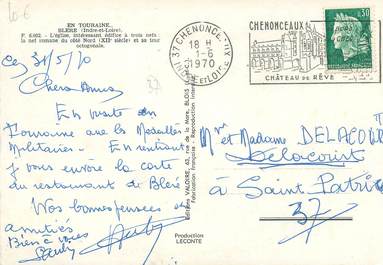 EN TOURAINE
BLÉRÉ (Indre-et-Loire)
F. 6.002. - L'église, intéressant édifice à trois nefs :
la nef romane du côté Nord (XIIe siècle) et sa tour
octogonale.
Ce, 31/5/70
Chers Amis
En visite en
Touraine avec les Médaillés
Militaires - En rentrant
je vous envoie la carte
du restaurant de Bléré
Nos bonnes pensées
amitiés
Bien à vous
37
Editions VALOIRE, BLOIS
Fabrication Française - Reproduction
37 CHENONCEAUX
18 H
1-6
1970
INDRE ET LOIRE
CHENONCEAUX
CHÂTEAU DE RÊVE
0,30
Mr et Madame DELACOURT
Delacourt
à Saint Patrice
37
Production
LECONTE